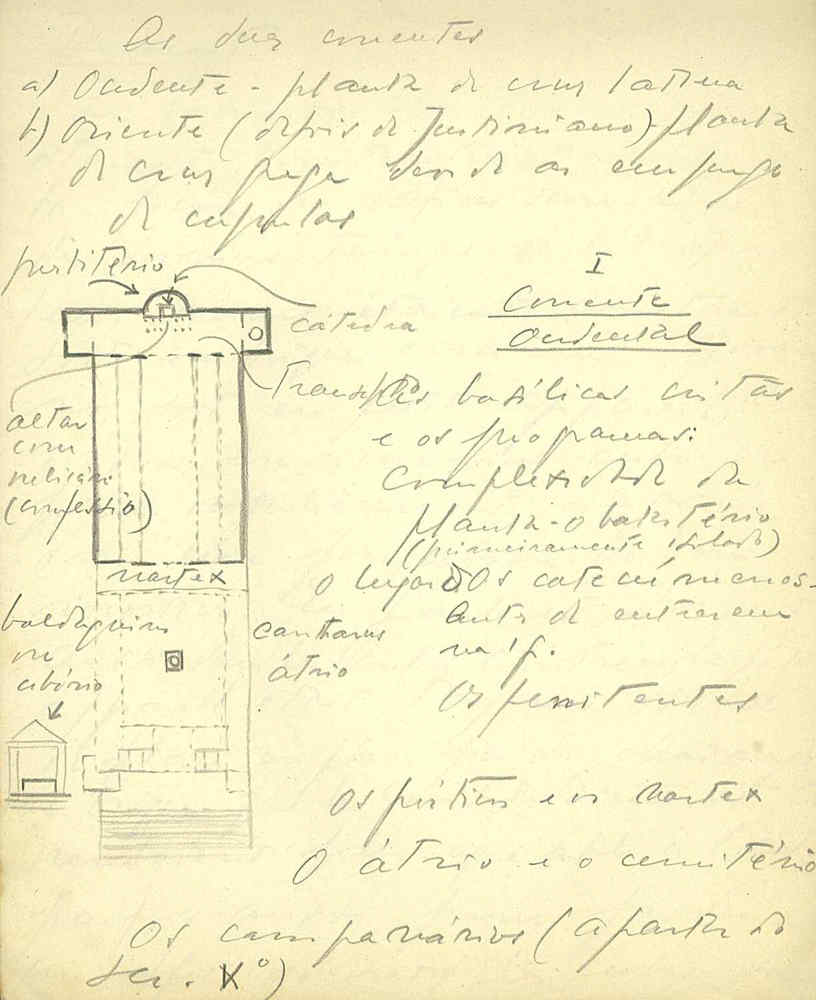 As duas correntes
a) Ocidente - planta de cruz latina
b) Oriente (depois de Justiniano) - planta
de cruz grega
de cupulas
I
Corrente
Ocidental
cátedra
Transepto
altar
com
relicário
(confessio)
As basílicas cristãs
e os programas:
Complexidade da
planta - o batistério
(primeiramente isolado)
o lugar dos catecúmenos -
antes de entrarem
na ig.
Os penitentes
nartex
baldaquino
ou
cibório
cantharus
átrio
Os pórticos e o nartex
O átrio e o cemitério
Os campanários (a partir do
sec. Xº)